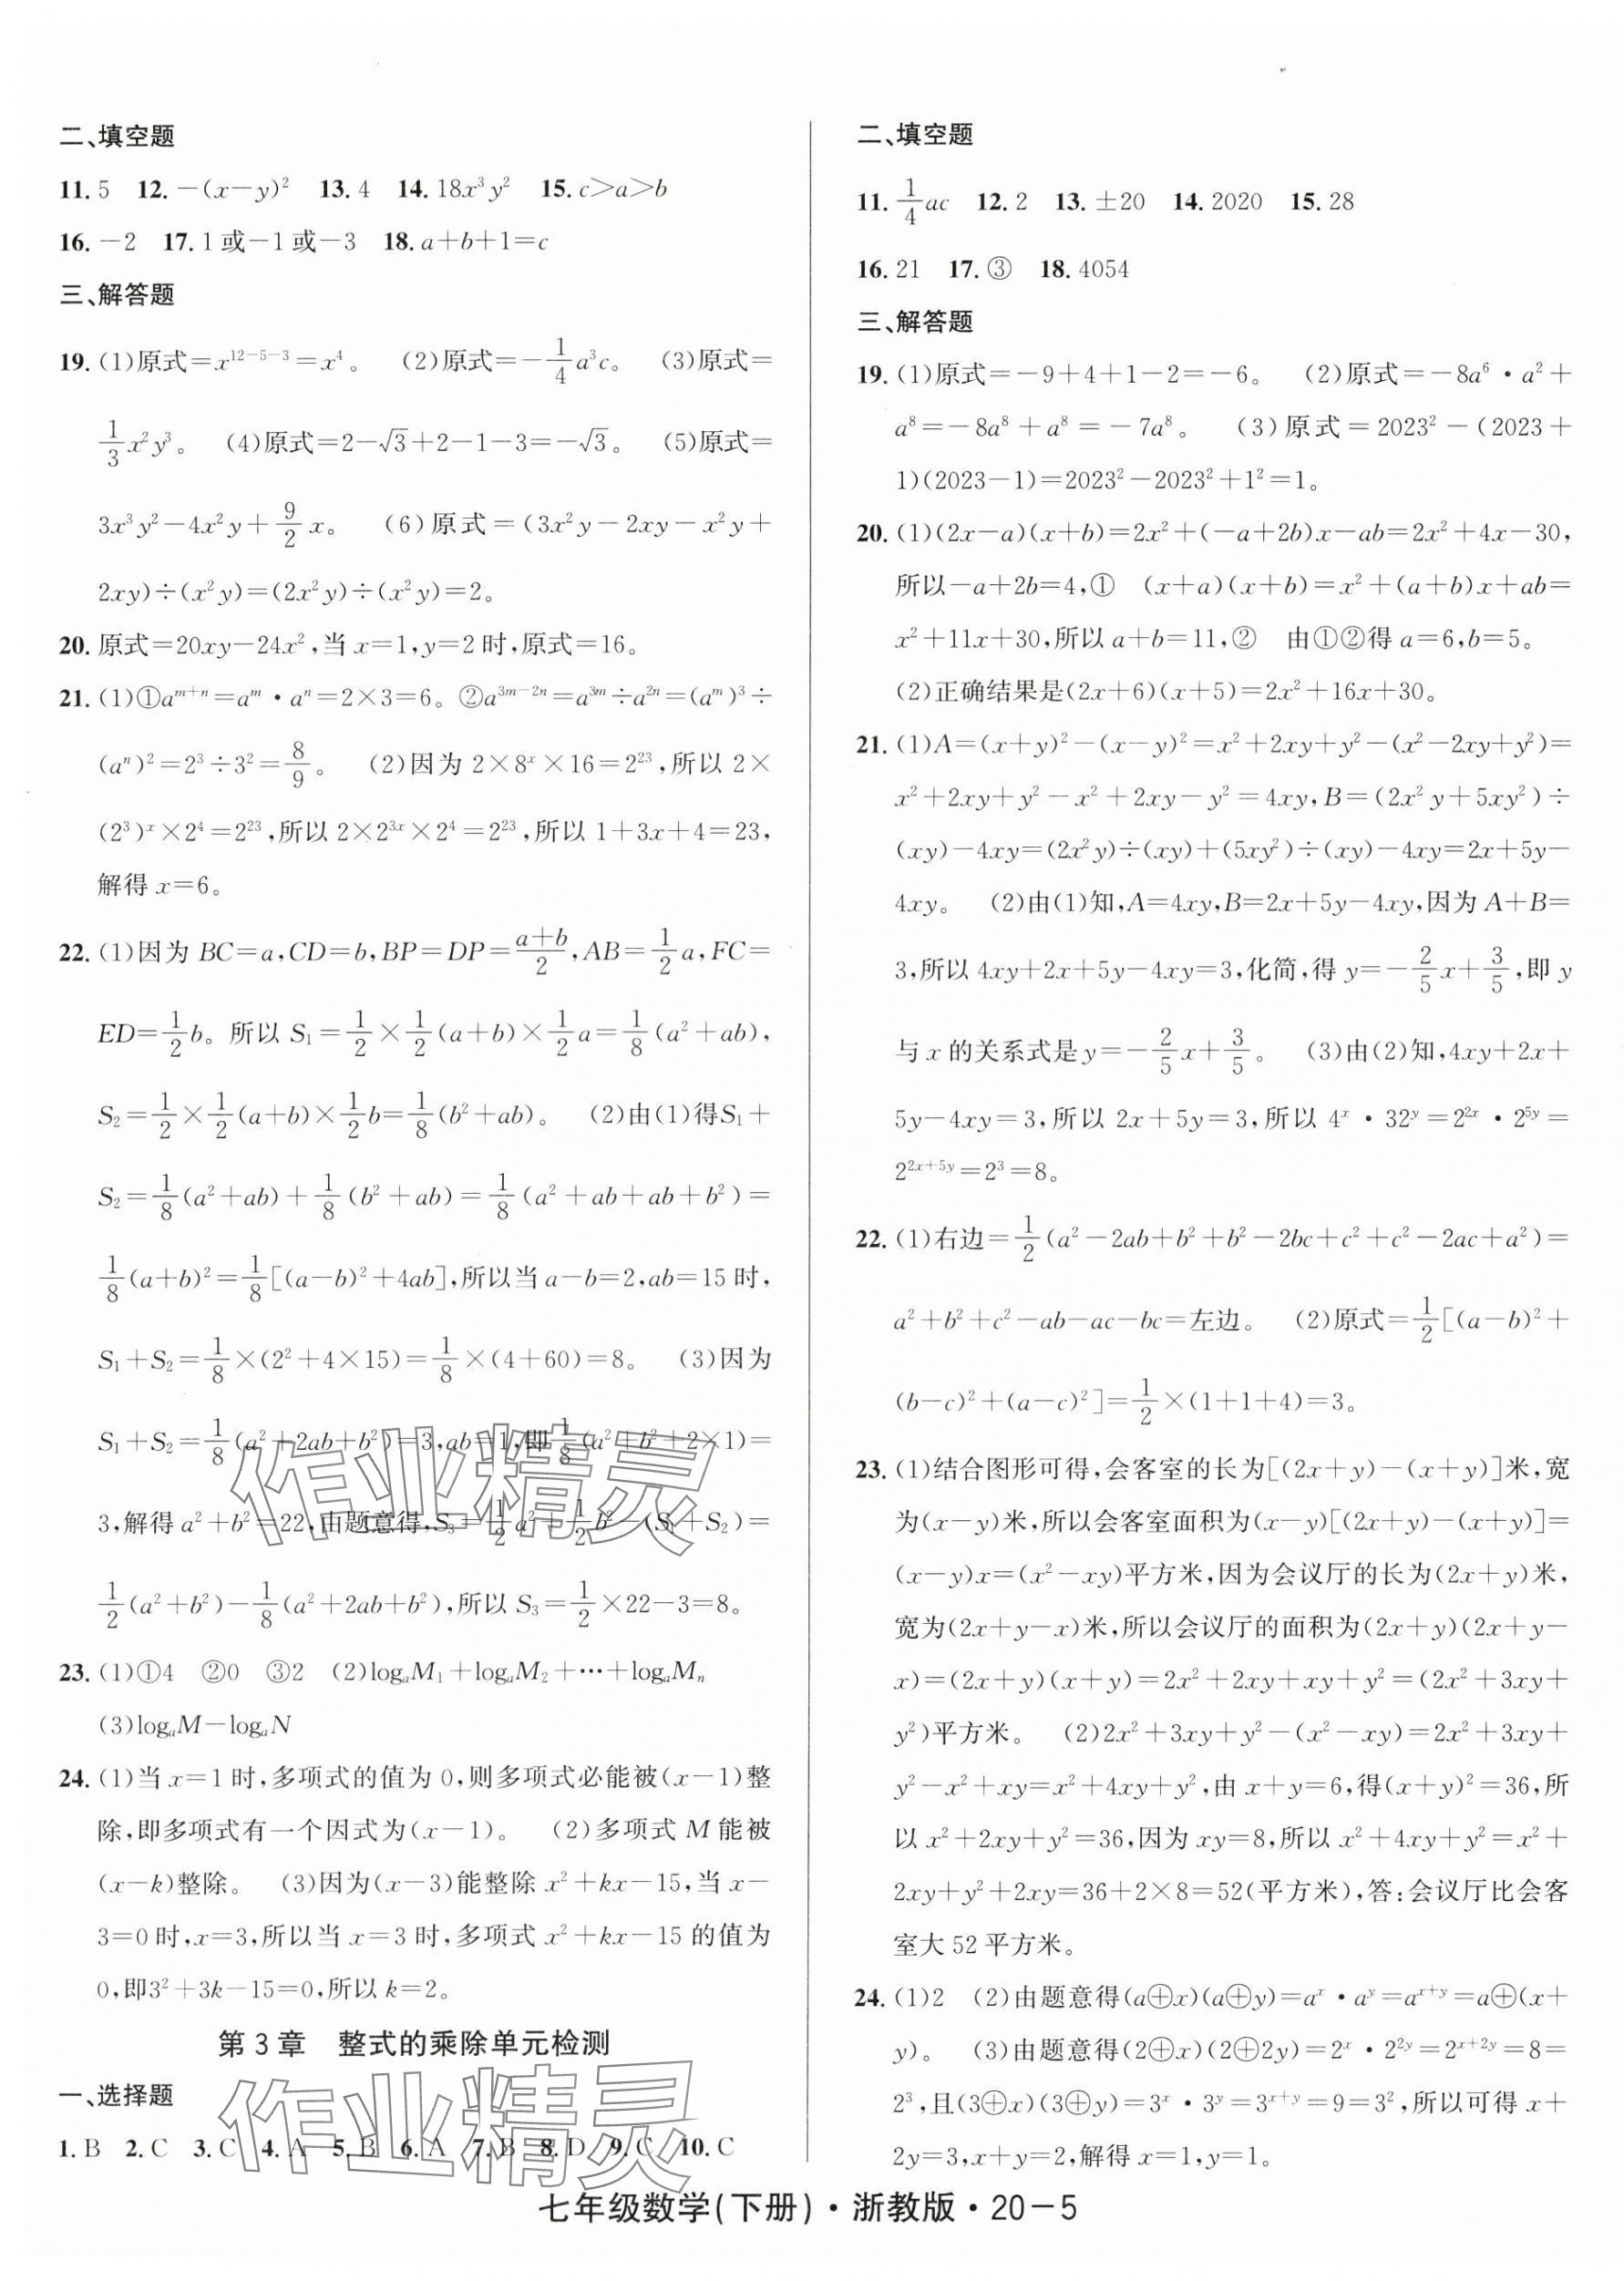 二、填空题
11. 5　12. －(x－y)²　13. 4　14. 18x³y²　15. c＞a＞b
16. －2　17. 1或－1或－3　18. a＋b＋1＝c
三、解答题
19. (1)原式＝x¹²⁻⁵⁻³＝x⁴。　(2)原式＝－1/4 a³c。　(3)原式＝
1/3 x²y³。　(4)原式＝2－√3＋2－1－3＝－√3。　(5)原式＝
3x³y²－4x²y＋9/2 x。　(6)原式＝(3x²y－2xy－x²y＋
2xy)÷(x²y)＝(2x²y)÷(x²y)＝2。
20. 原式＝20xy－24x²,当x＝1,y＝2时,原式＝16。
21. (1)①aᵐ⁺ⁿ＝aᵐ・aⁿ＝2×3＝6。②a³ᵐ⁻²ⁿ＝a³ᵐ÷a²ⁿ＝(aᵐ)³÷
(aⁿ)²＝2³÷3²＝8/9。　(2)因为2×8ˣ×16＝2²³,所以2×
(2³)ˣ×2⁴＝2²³,所以2×2³ˣ×2⁴＝2²³,所以1＋3x＋4＝23,
解得x＝6。
22. (1)因为BC＝a,CD＝b,BP＝DP＝(a＋b)/2,AB＝1/2 a,FC＝
ED＝1/2 b。所以S₁＝1/2×1/2(a＋b)×1/2 a＝1/8(a²＋ab),
S₂＝1/2×1/2(a＋b)×1/2 b＝1/8(b²＋ab)。　(2)由(1)得S₁＋
S₂＝1/8(a²＋ab)＋1/8(b²＋ab)＝1/8(a²＋ab＋ab＋b²)＝
1/8(a＋b)²＝1/8[(a－b)²＋4ab],所以当a－b＝2,ab＝15时,
S₁＋S₂＝1/8×(2²＋4×15)＝1/8×(4＋60)＝8。　(3)因为
S₁＋S₂＝1/8(a²＋2ab＋b²)＝3,ab＝1,即1/8(a²＋b²＋2×1)＝
3,解得a²＋b²＝22,由题意得,S₃＝1/2 a²＋1/2 b²－(S₁＋S₂)＝
1/2(a²＋b²)－1/8(a²＋2ab＋b²),所以S₃＝1/2×22－3＝8。
23. (1)①4　②0　③2　(2)logₐM₁＋logₐM₂＋…＋logₐMₙ
(3)logₐM－logₐN
24. (1)当x＝1时,多项式的值为0,则多项式必能被(x－1)整
除,即多项式有一个因式为(x－1)。　(2)多项式M能被
(x－k)整除。　(3)因为(x－3)能整除x²＋kx－15,当x－
3＝0时,x＝3,所以当x＝3时,多项式x²＋kx－15的值为
0,即3²＋3k－15＝0,所以k＝2。
第3章　整式的乘除单元检测
一、选择题
1. B　2. C　3. C　4. A　5. B　6. A　7. B　8. D　9. C　10. C
二、填空题
11. 1/4 ac　12. 2　13. ±20　14. 2020　15. 28
16. 21　17. ③　18. 4054
三、解答题
19. (1)原式＝－9＋4＋1－2＝－6。　(2)原式＝－8a⁶・a²＋
a⁸＝－8a⁸＋a⁸＝－7a⁸。　(3)原式＝2023²－(2023＋
1)(2023－1)＝2023²－2023²＋1²＝1。
20. (1)(2x－a)(x＋b)＝2x²＋(－a＋2b)x－ab＝2x²＋4x－30,
所以－a＋2b＝4,①　(x＋a)(x＋b)＝x²＋(a＋b)x＋ab＝
x²＋11x＋30,所以a＋b＝11,②　由①②得a＝6,b＝5。
(2)正确结果是(2x＋6)(x＋5)＝2x²＋16x＋30。
21. (1)A＝(x＋y)²－(x－y)²＝x²＋2xy＋y²－(x²－2xy＋y²)＝
x²＋2xy＋y²－x²＋2xy－y²＝4xy,B＝(2x²y＋5xy²)÷
(xy)－4xy＝(2x²y)÷(xy)＋(5xy²)÷(xy)－4xy＝2x＋5y－
4xy。　(2)由(1)知,A＝4xy,B＝2x＋5y－4xy,因为A＋B＝
3,所以4xy＋2x＋5y－4xy＝3,化简,得y＝－2/5 x＋3/5,即y
与x的关系式是y＝－2/5 x＋3/5。　(3)由(2)知,4xy＋2x＋
5y－4xy＝3,所以2x＋5y＝3,所以4ˣ・32ʸ＝2²ˣ・2⁵ʸ＝
2²ˣ⁺⁵ʸ＝2³＝8。
22. (1)右边＝1/2(a²－2ab＋b²＋b²－2bc＋c²＋c²－2ac＋a²)＝
a²＋b²＋c²－ab－ac－bc＝左边。　(2)原式＝1/2[(a－b)²＋
(b－c)²＋(a－c)²]＝1/2×(1＋1＋4)＝3。
23. (1)结合图形可得,会客室的长为[(2x＋y)－(x＋y)]米,宽
为(x－y)米,所以会客室面积为(x－y)[(2x＋y)－(x＋y)]＝
(x－y)x＝(x²－xy)平方米,因为会议厅的长为(2x＋y)米,
宽为(2x＋y－x)米,所以会议厅的面积为(2x＋y)(2x＋y－
x)＝(2x＋y)(x＋y)＝2x²＋2xy＋xy＋y²＝(2x²＋3xy＋
y²)平方米。　(2)2x²＋3xy＋y²－(x²－xy)＝2x²＋3xy＋
y²－x²＋xy＝x²＋4xy＋y²,由x＋y＝6,得(x＋y)²＝36,所
以x²＋2xy＋y²＝36,因为xy＝8,所以x²＋4xy＋y²＝x²＋
2xy＋y²＋2xy＝36＋2×8＝52(平方米),答:会议厅比会客
室大52平方米。
24. (1)2　(2)由题意得(a⊕x)(a⊕y)＝aˣ・aʸ＝aˣ⁺ʸ＝a⊕(x＋
y)。　(3)由题意得(2⊕x)(2⊕2y)＝2ˣ・2²ʸ＝2ˣ⁺²ʸ＝8＝
2³,且(3⊕x)(3⊕y)＝3ˣ・3ʸ＝3ˣ⁺ʸ＝9＝3²,所以可得x＋
2y＝3,x＋y＝2,解得x＝1,y＝1。
作业精灵
作业精灵
七年级数学(下册)・浙教版・20－5